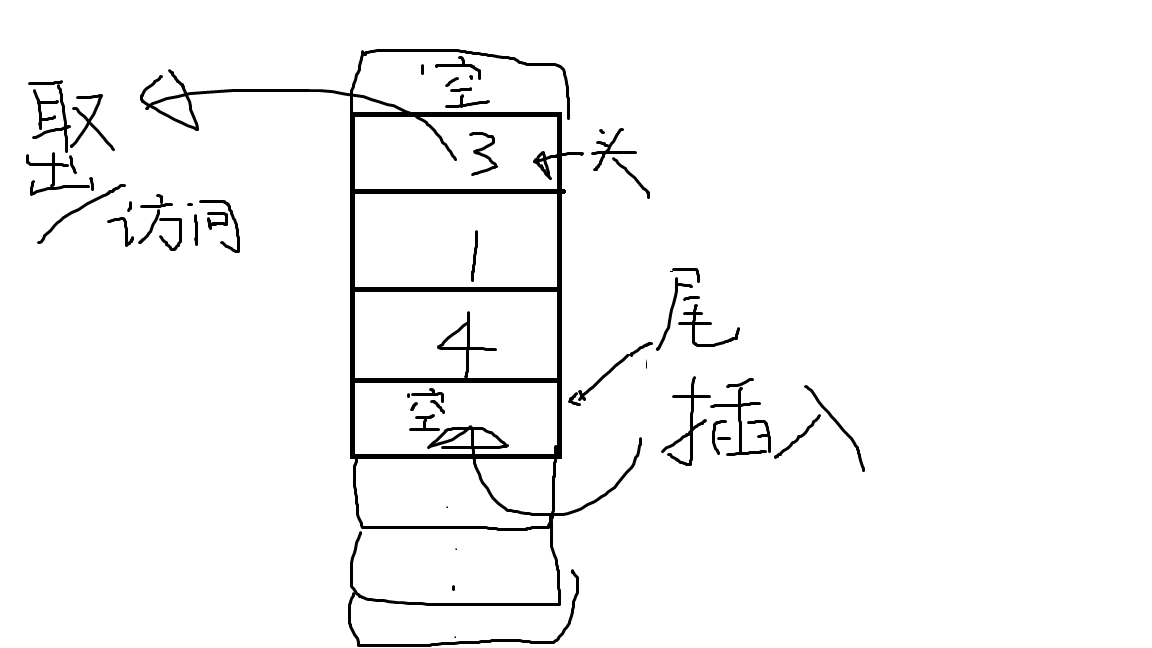 空
取
出
/访问
3
头
1
4
尾
空
插入